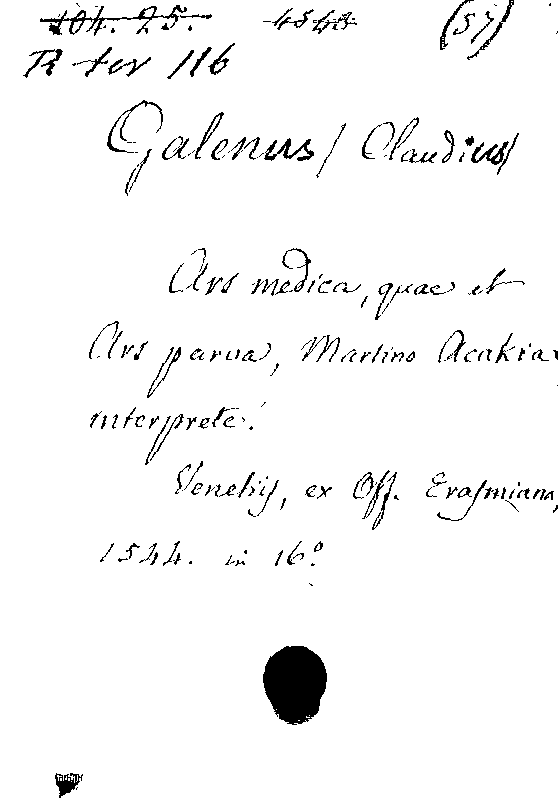 104. 25. 4548 (57)
R ter 116
Galenus / Claudius/
Ars medica, quae et
Ars parva, Martino Acakia
interprete.
Venetijs, ex Off. Erasmiana,
1544. in 16.º